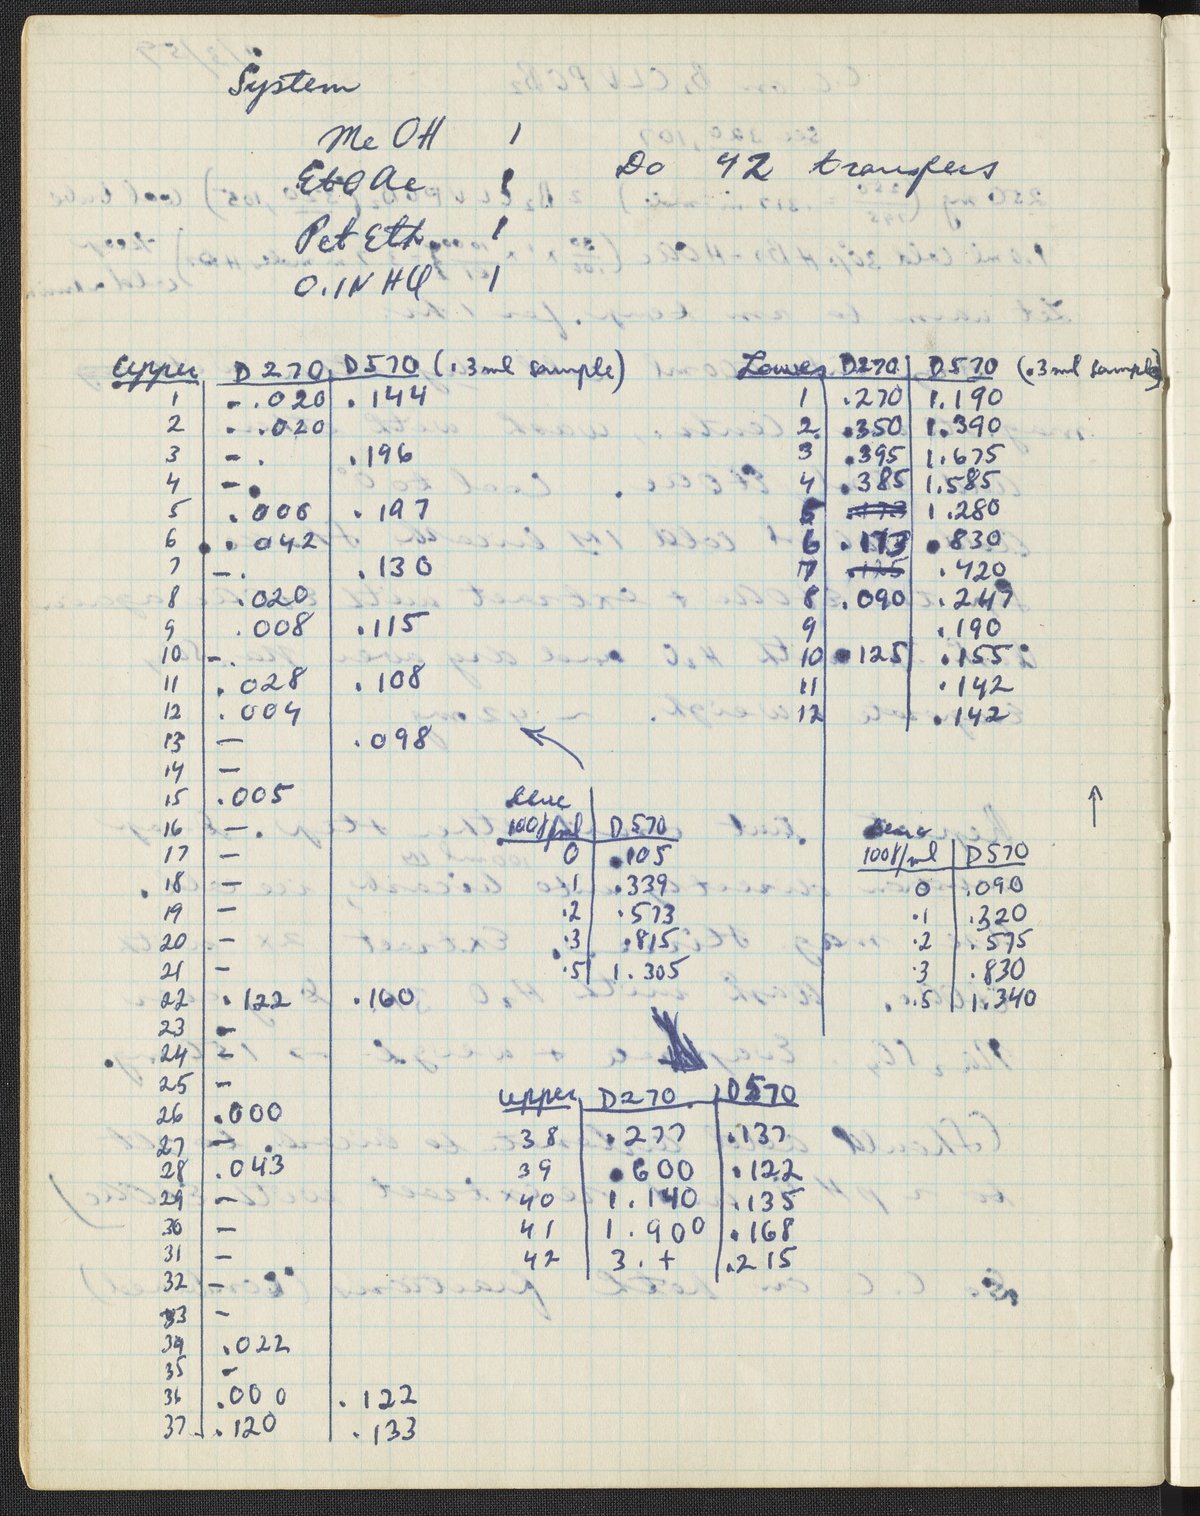 System
MeOH 1
EtOAc 1
Pet Eth 1
0.1N HCl 1
Do 42 transfers
Upper D270 D570 (.3ml sample)
1 -.020 .144
2 -.020
3 - .196
4 -
5 .006 .197
6 .042
7 - .130
8 .020
9 .008 .115
10 -
11 .028 .108
12 .004
13 - .098
14 -
15 .005
16 -
17 -
18 -
19 -
20 -
21 -
22 .122 .160
23 -
24 -
25 -
26 .000
27 -
28 .043
29 -
30 -
31 -
32 -
33 -
34 .022
35 -
36 .000 .122
37 .120 .133
Lower D270 D570 (.3ml sample)
1 .270 1.190
2 .350 1.390
3 .395 1.675
4 .385 1.585
5 1.280
6 .173 .830
7 .125 .420
8 .090 .247
9 .190
10 .125 .155
11 .142
12 .142
100γ/ml D570
0 .105
.1 .339
.2 .573
.3 .815
.5 1.305
100γ/ml D570
0 .090
.1 .320
.2 .575
.3 .830
.5 1.340
Upper D270 D570
38 .277 .137
39 .600 .122
40 1.140 .135
41 1.900 .168
42 3.+ .215